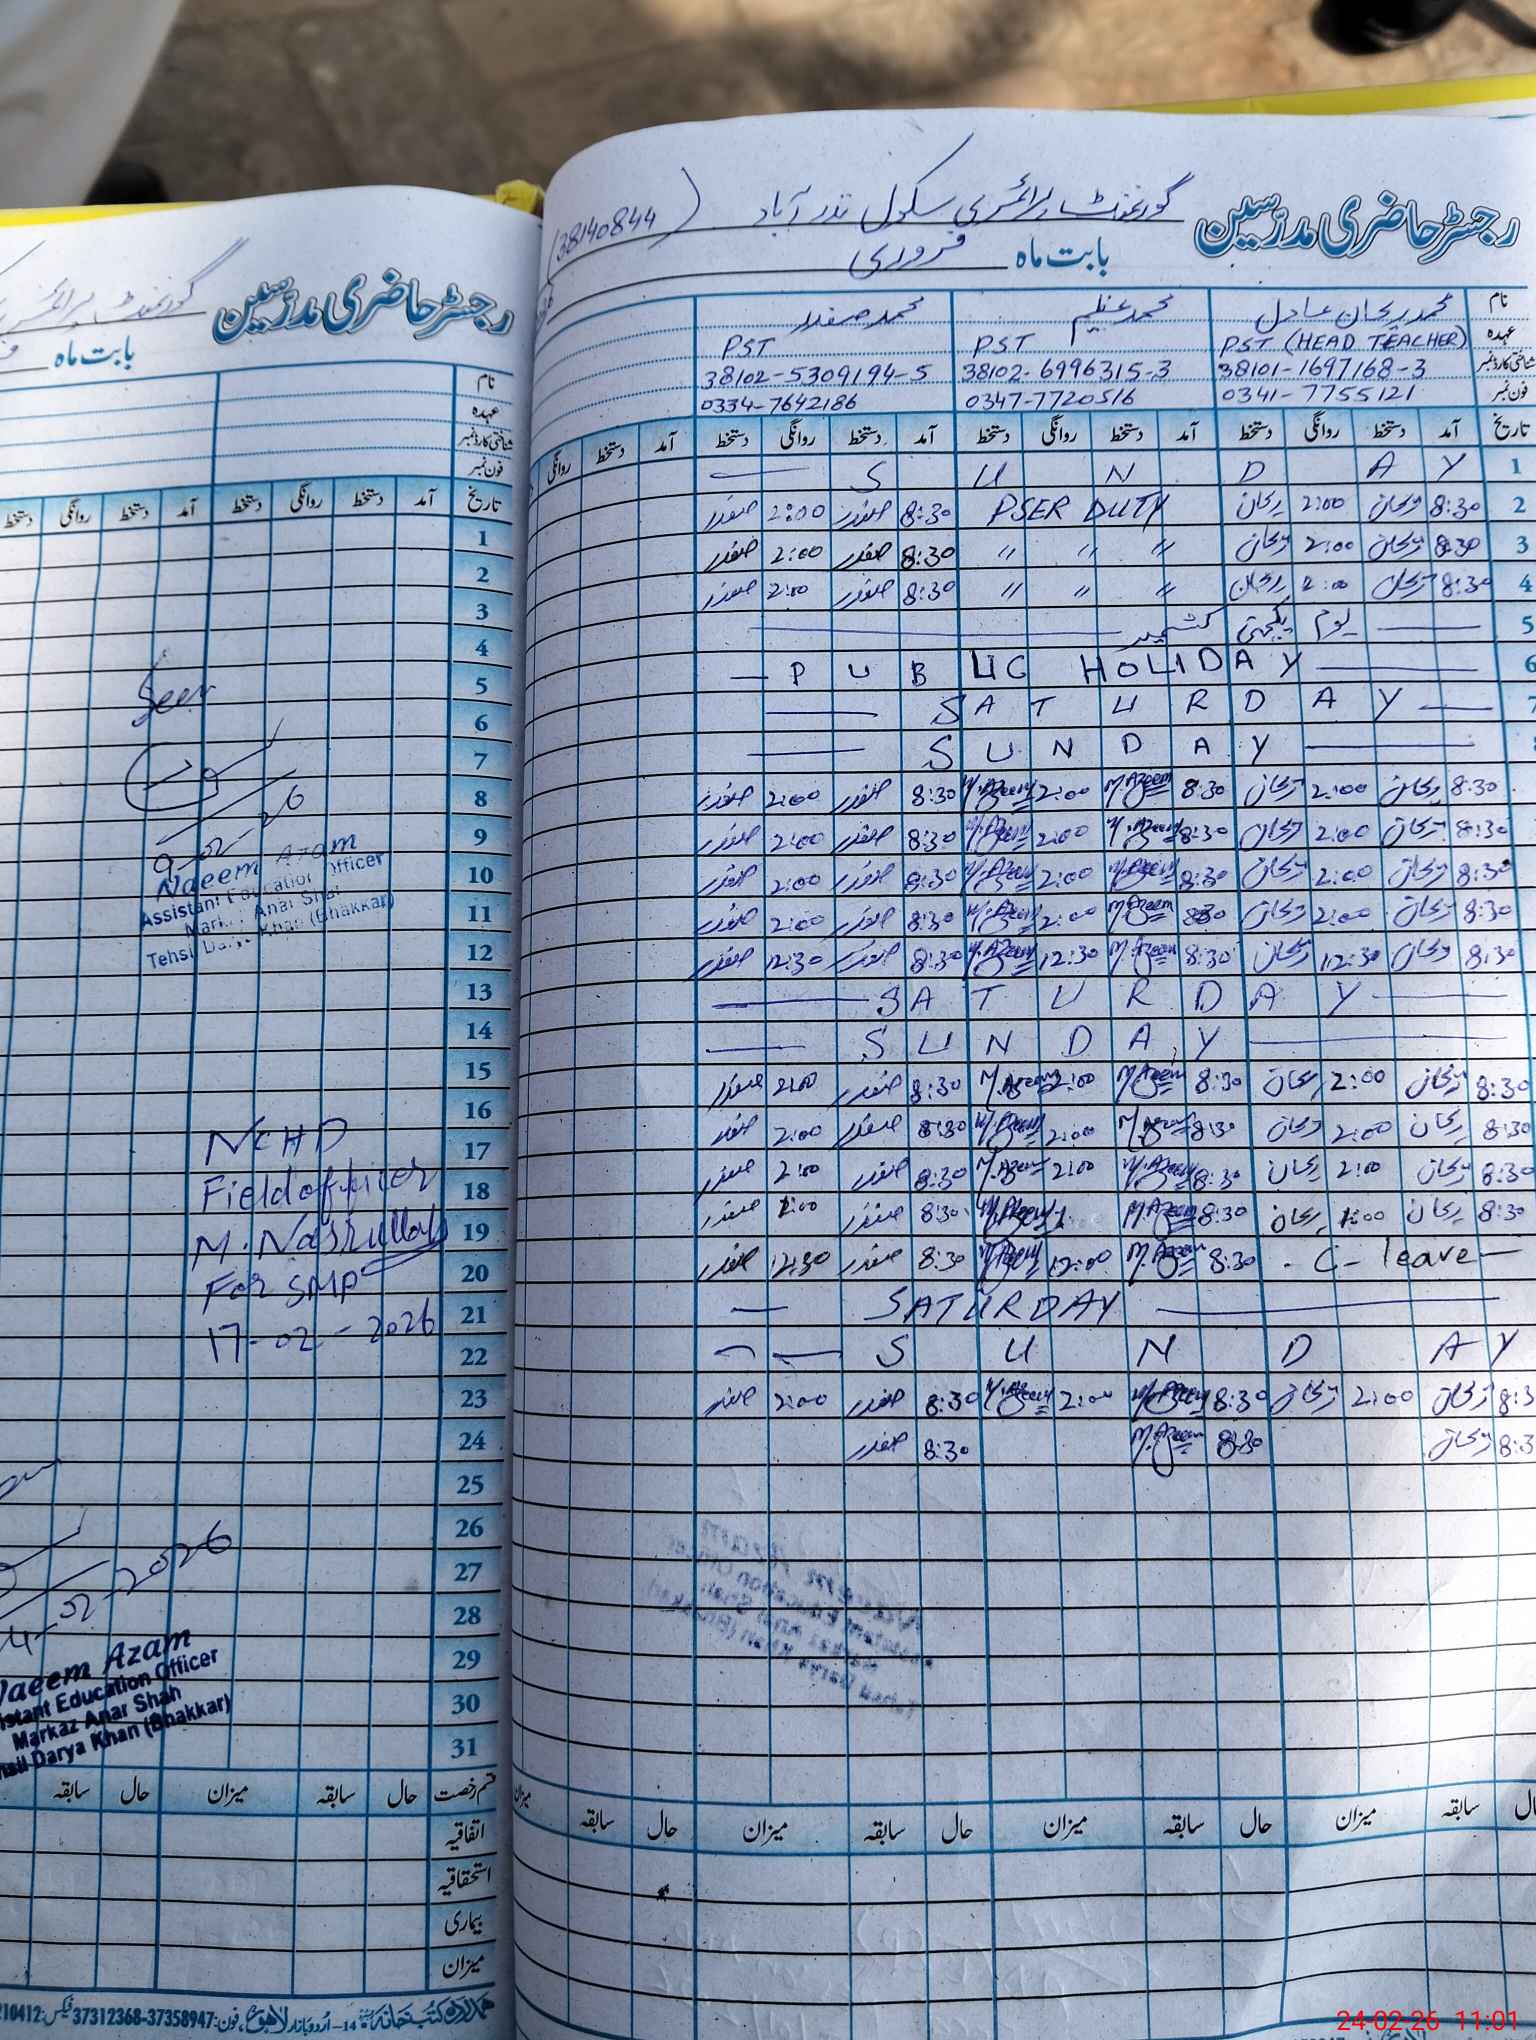 رجسٹر حاضری مدرسین گورنمنٹ پرائمری سکول نذر آباد (38140844)
بابت ماہ فروری
نام محمد ریحان عادل محمد عظیم محمد صفدر
عہدہ PST (HEAD TEACHER) PST PST
شناختی کارڈ نمبر 38101-1697168-3 38102-6996315-3 38102-5309194-5
فون نمبر 0341-7755121 0347-7720516 0334-7642186
تاریخ آمد دستخط روانگی دستخط آمد دستخط روانگی دستخط آمد دستخط روانگی دستخط آمد دستخط روانگی
1 SUNDAY
2 8:30 ریحان 2:00 ریحان PSER DUTY 8:30 صفدر 2:00 صفدر
3 8:30 ریحان 2:00 ریحان " " " 8:30 صفدر 2:00 صفدر
4 8:30 ریحان 2:00 ریحان " " " 8:30 صفدر 2:00 صفدر
5 یوم یکجہتی کشمیر
6 PUBLIC HOLIDAY
7 SATURDAY
SUNDAY
8:30 ریحان 2:00 ریحان 8:30 M.Azeem 2:00 M.Azeem 8:30 صفدر 2:00 صفدر
8:30 ریحان 2:00 ریحان 8:30 M.Azeem 2:00 M.Azeem 8:30 صفدر 2:00 صفدر
8:30 ریحان 2:00 ریحان 8:30 M.Azeem 2:00 M.Azeem 8:30 صفدر 2:00 صفدر
8:30 ریحان 2:00 ریحان 8:30 M.Azeem 2:00 M.Azeem 8:30 صفدر 2:00 صفدر
8:30 ریحان 12:30 ریحان 8:30 M.Azeem 12:30 M.Azeem 8:30 صفدر 12:30 صفدر
SATURDAY
SUNDAY
8:30 ریحان 2:00 ریحان 8:30 M.Azeem 2:00 M.Azeem 8:30 صفدر 2:00 صفدر
8:30 ریحان 2:00 ریحان 8:30 M.Azeem 2:00 M.Azeem 8:30 صفدر 2:00 صفدر
8:30 ریحان 2:00 ریحان 8:30 M.Azeem 2:00 M.Azeem 8:30 صفدر 2:00 صفدر
8:30 ریحان ریحان 8:30 M.Azeem M.Azeem 8:30 صفدر صفدر
C-leave 8:30 M.Azeem 12:00 M.Azeem 8:30 صفدر 12:30 صفدر
SATURDAY
SUNDAY
ریحان 2:00 ریحان 8:30 M.Azeem 2:00 M.Azeem 8:30 صفدر 2:00 صفدر
ریحان 8:30 M.Azeem 8:30 صفدر
سابقہ میزان حال سابقہ میزان حال سابقہ میزان حال سابقہ
رجسٹر حاضری مدرسین گورنمنٹ
بابت ماہ
نام
عہدہ
شناختی کارڈ نمبر
فون نمبر
تاریخ آمد دستخط روانگی دستخط آمد دستخط روانگی دستخط
1
2
3
4
5
6
7
8
9
10
11
12
13
14
15
16
17
18
19
20
21
22
23
24
25
26
27
28
29
30
31
Seen
9-02-26
Naeem Azam
Assistant Education Officer
Markaz Anar Shah
Tehsil Darya Khan (Bhakkar)
NCHD
Field officer
M. Nasrullah
For SMP
17-02-2026
02-2026
Naeem Azam
Assistant Education Officer
Markaz Anar Shah
Tehsil Darya Khan (Bhakkar)
قسم رخصت حال سابقہ میزان حال سابقہ
اتفاقیہ
استحقاقیہ
بیماری
میزان
ہمدرد کتب خانہ 14-اردو بازار لاہور، فون: 37312368-37358947 فیکس:
24-02-26 11:01